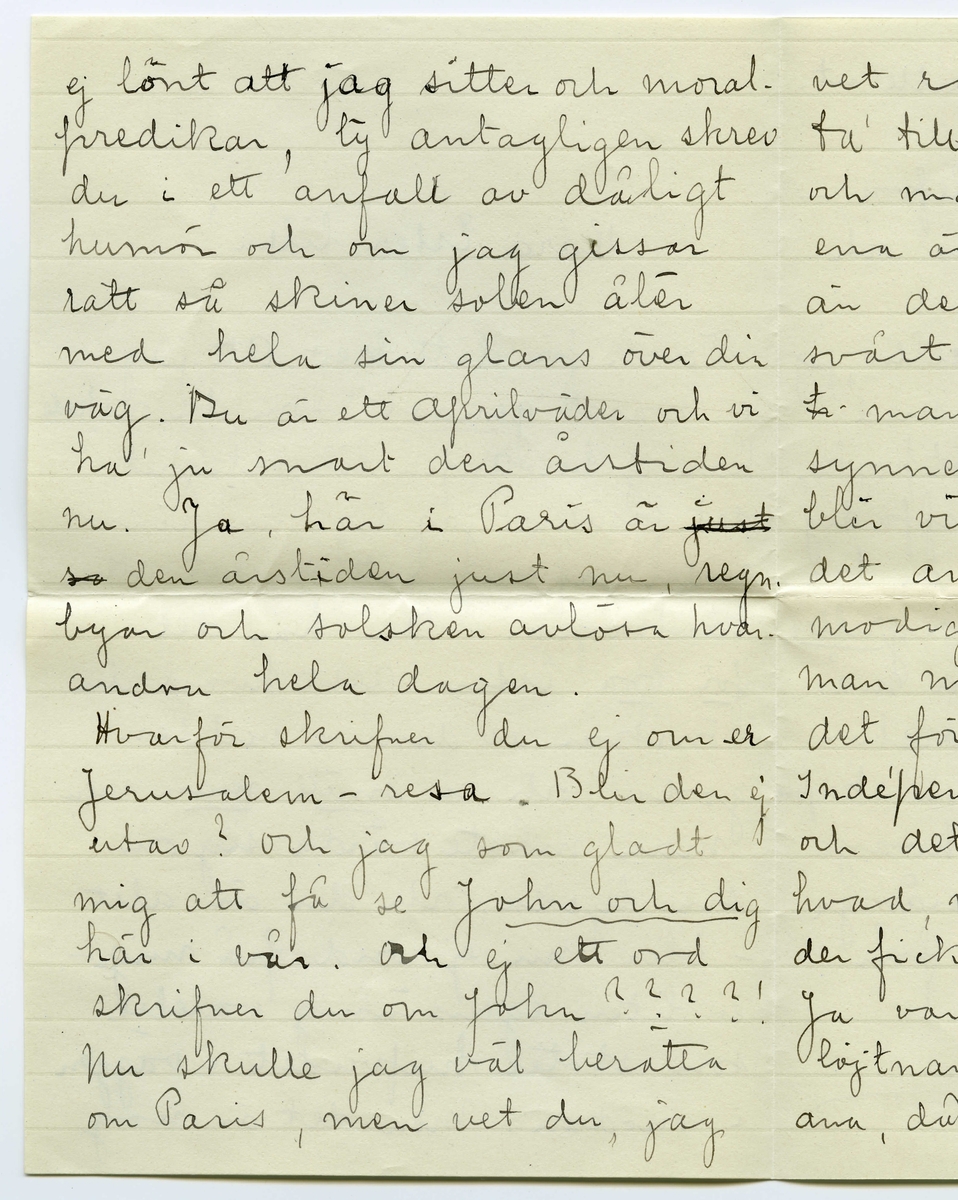 ej lönt att jag sitter och moral-
predikar, ty antagligen skrev
du i ett anfall av dåligt
humör och om jag gissar
rätt så skiner solen åter
med hela sin glans över din
väg. Du är ett Aprilväder och vi
ha' ju snart den årstiden
nu. Ja, här i Paris är just
so den årstiden just nu, regn-
byar och solsken avlösa hvar-
andra hela dagen.
Hvarför skrifver du ej om er
Jerusalem-resa. Blir den ej
utav? och jag som gladt
mig att få se John och dig
här i vår. och ej ett ord
skrifver du om John ????!
Nu skulle jag väl berätta
om Paris, men vet du, jag
vet r
ta' till
och m
ena ä
än de
svårt
tr- man
synne
blir vi
det an
modig
man n
det för
Indépen
och det
hvad,
der fick
Ja var
löjtnan
ana, då